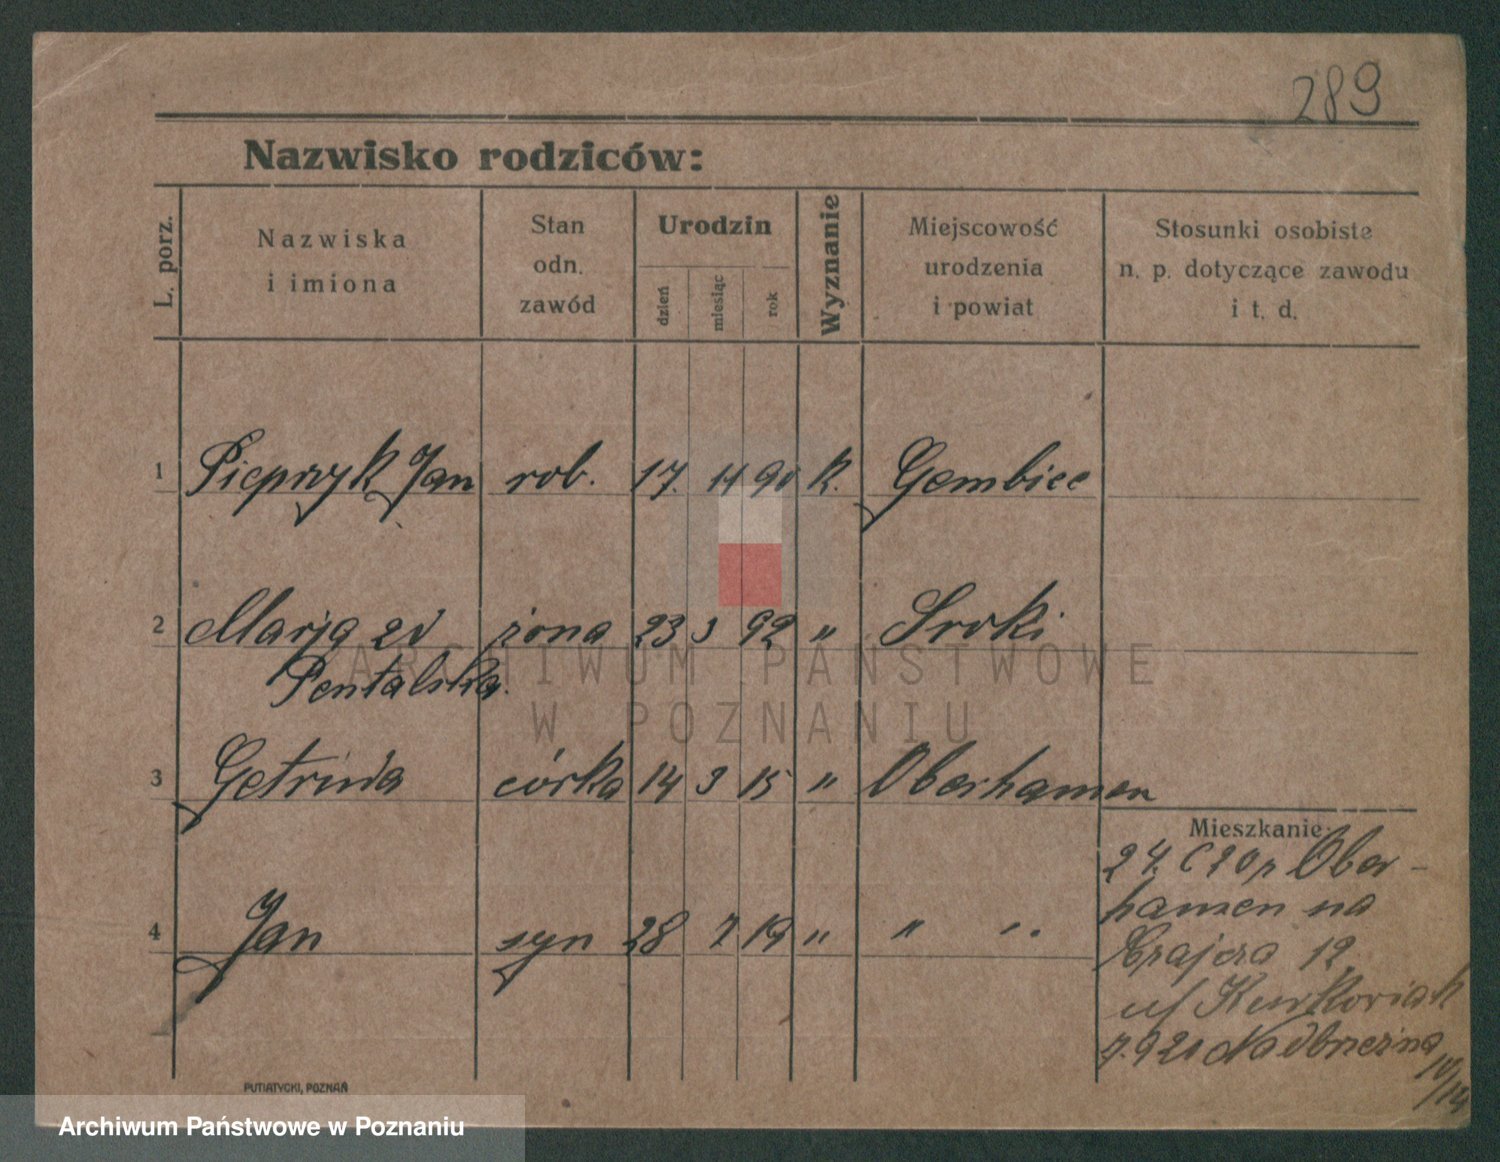 289
Nazwisko rodziców:
L. porz.
Nazwiska
i imiona
Stan
odn.
zawód
Urodzin
dzień
miesiąc
rok
Wyznanie
Miejscowość
urodzenia
i powiat
Stosunki osobiste
n. p. dotyczące zawodu
i t. d.
1 Pieprzyk Jan rob. 17. 11 90 k. Gembice
2 Marja zd żona 23 3 92 " Sroki
Pentalska.
ARCHIWUM PAŃSTWOWE
W POZNANIU
3 córka 14 3 15 " Oberhausen
Mieszkanie:
24. 20 Ober-
hausen na
4 Jan syn 28 7 19 " " "
12
7.9 21 Nadbrzeżna
IV/14
PUTIATYCKI, POZNAŃ
Archiwum Państwowe w Poznaniu